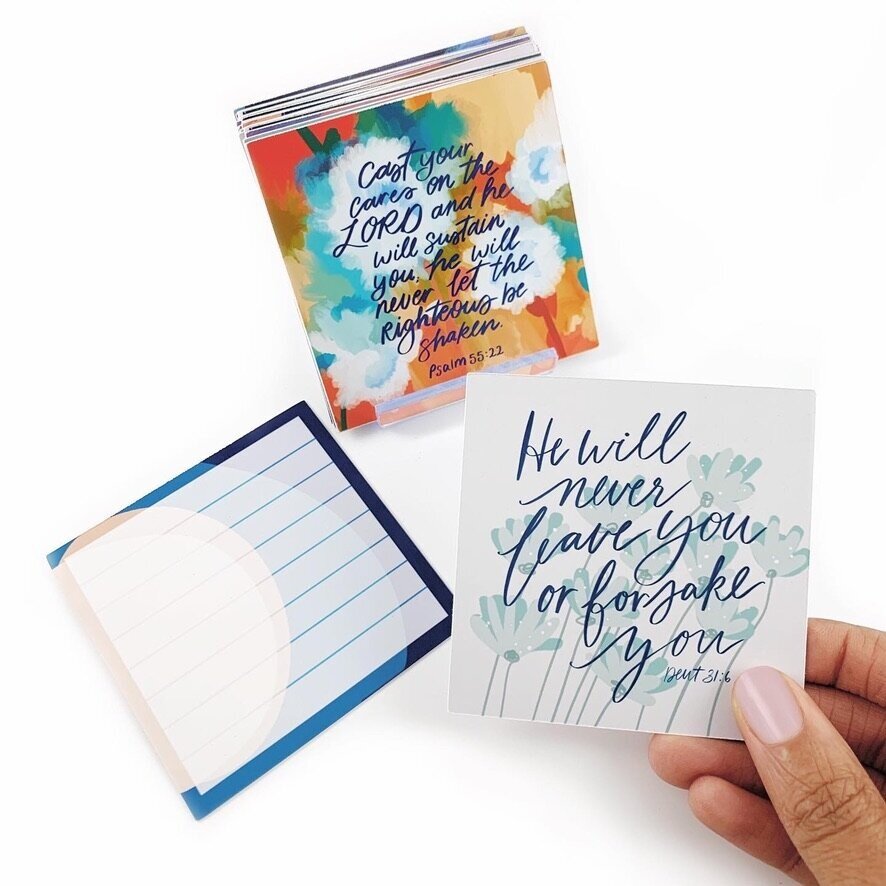 Cast your
cares on the
LORD and he
will sustain
you, he will
never let the
Righteous be
shaken.
Psalm 55:22
He will
never
leave you
or forsake
you
Deut 31:6